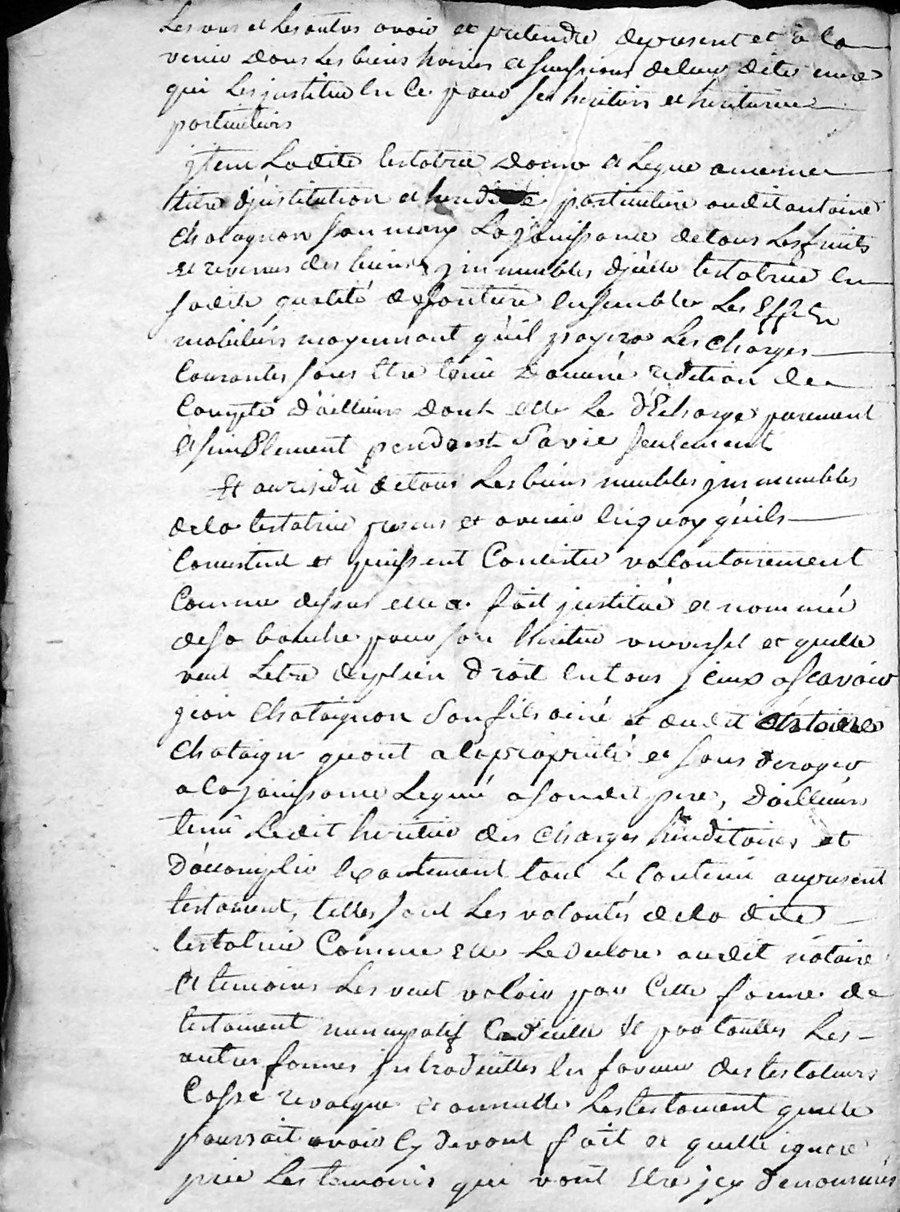 Les uns et Les autres avoir et pretendre de present et à la
venir dans Les biens hoiries et successions de leur dite mere
qui Les justitue En Ce pour ses heritiers et heritieres
particuliers
jtem Ladite testatrice Donne et Legue au meme
titre d'justitution et heredité particuliere audit antoine
chataignon son mary La jouissance de tous Les fruits
et revenus des biens jmmeubles d'jcelle testatrice En
sadite qualité de Ensembles Les Effets
mobiliers moyennant qu'il payera Les charges
Courantes sans Etre tenu Daucune redition de
Compte D'ailleurs dont elle Le d'Echarge purement
et simplement pendant sa vie seulement
Et au residu de tous Les biens meubles jmmeubles
de la testatrice presens et avenir En quoy qu'ils
Consistent et puissent Consister volontairement
Comme dessus elle a fait justitué et nommé
de sa bouche pour son heritier universel et quelle
veut Letre de plein droit En tous jceux a scavoir
jean chataignon son fils ainé et dudit
chataign quant a la proprieté et sans deroger
a la jouissance Legué a son dit pere, D'ailleurs
tenu Ledit heritier des charges hereditaires et
D'accomplir Exactement tout Le Contenu au present
testament, telles sont Les volontés de la dite
testatrice Comme Elle Le declare audit notaire
et temoins Les veut valoir par Cette forme de
testament nuncupatif Codicille et par toutes Les
autres formes jntroduittes En faveur des testateurs
Casse revoque et annulle Les testament quelle
pourrait avoir Cy devant fait et quelle ignore
prie Les temoins qui vont Etre jcy denommés